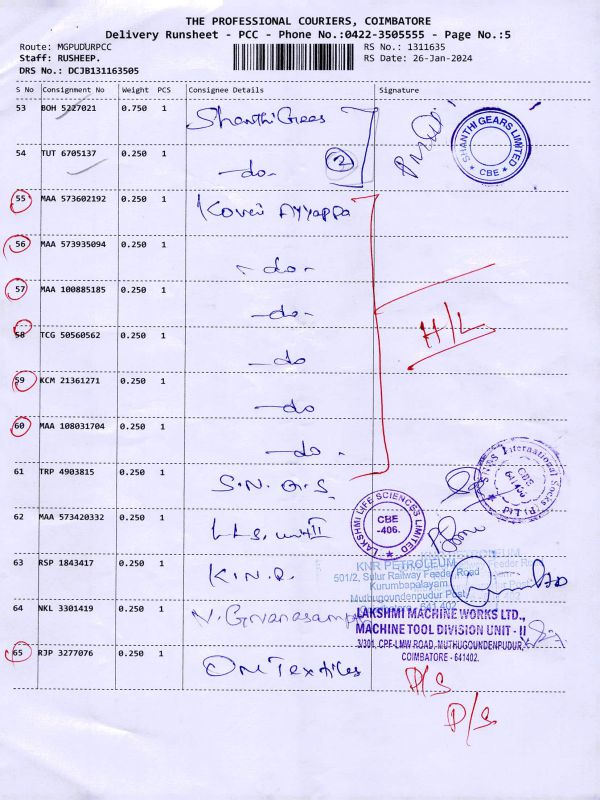 THE PROFESSIONAL COURIERS, COIMBATORE
Delivery Runsheet - PCC - Phone No.:0422-3505555 - Page No.:5
Route: MGPUDURPCC RS No.: 1311635
Staff: RUSHEEP. RS Date: 26-Jan-2024
DRS No.: DCJB131163505
S No Consignment No Weight PCS Consignee Details Signature
53 BOH 5227021 0.750 1 Shanthi Gears
SHANTHI GEARS LIMITED * CBE *
54 TUT 6705137 0.250 1 -do- 2
55 MAA 573602192 0.250 1 Kovai Ayyappa
56 MAA 573935094 0.250 1 -do-
57 MAA 100885185 0.250 1 -do-
H/L
58 TCG 50560562 0.250 1 -do
59 KCM 21361271 0.250 1 -do
60 MAA 108031704 0.250 1 -do-
61 TRP 4903815 0.250 1 S.N.G.S
International CBE 641406
62 MAA 573420332 0.250 1 L.L.S. unit II
LAKSHMI LIFE SCIENCES LIMITED CBE -406.
63 RSP 1843417 0.250 1 K.N.R.
KNR PETROLEUM
501/2, Sulur Railway Feeder Road
Kurumbapalayam
Muthugoundenpudur Post
641 402
64 NKL 3301419 0.250 1
LAKSHMI MACHINE WORKS LTD.,
MACHINE TOOL DIVISION UNIT - II
3/301, CPF-LMW ROAD, MUTHUGOUNDENPUDUR,
COIMBATORE - 641402.
65 RJP 3277076 0.250 1 Om Textiles
D/S
D/S